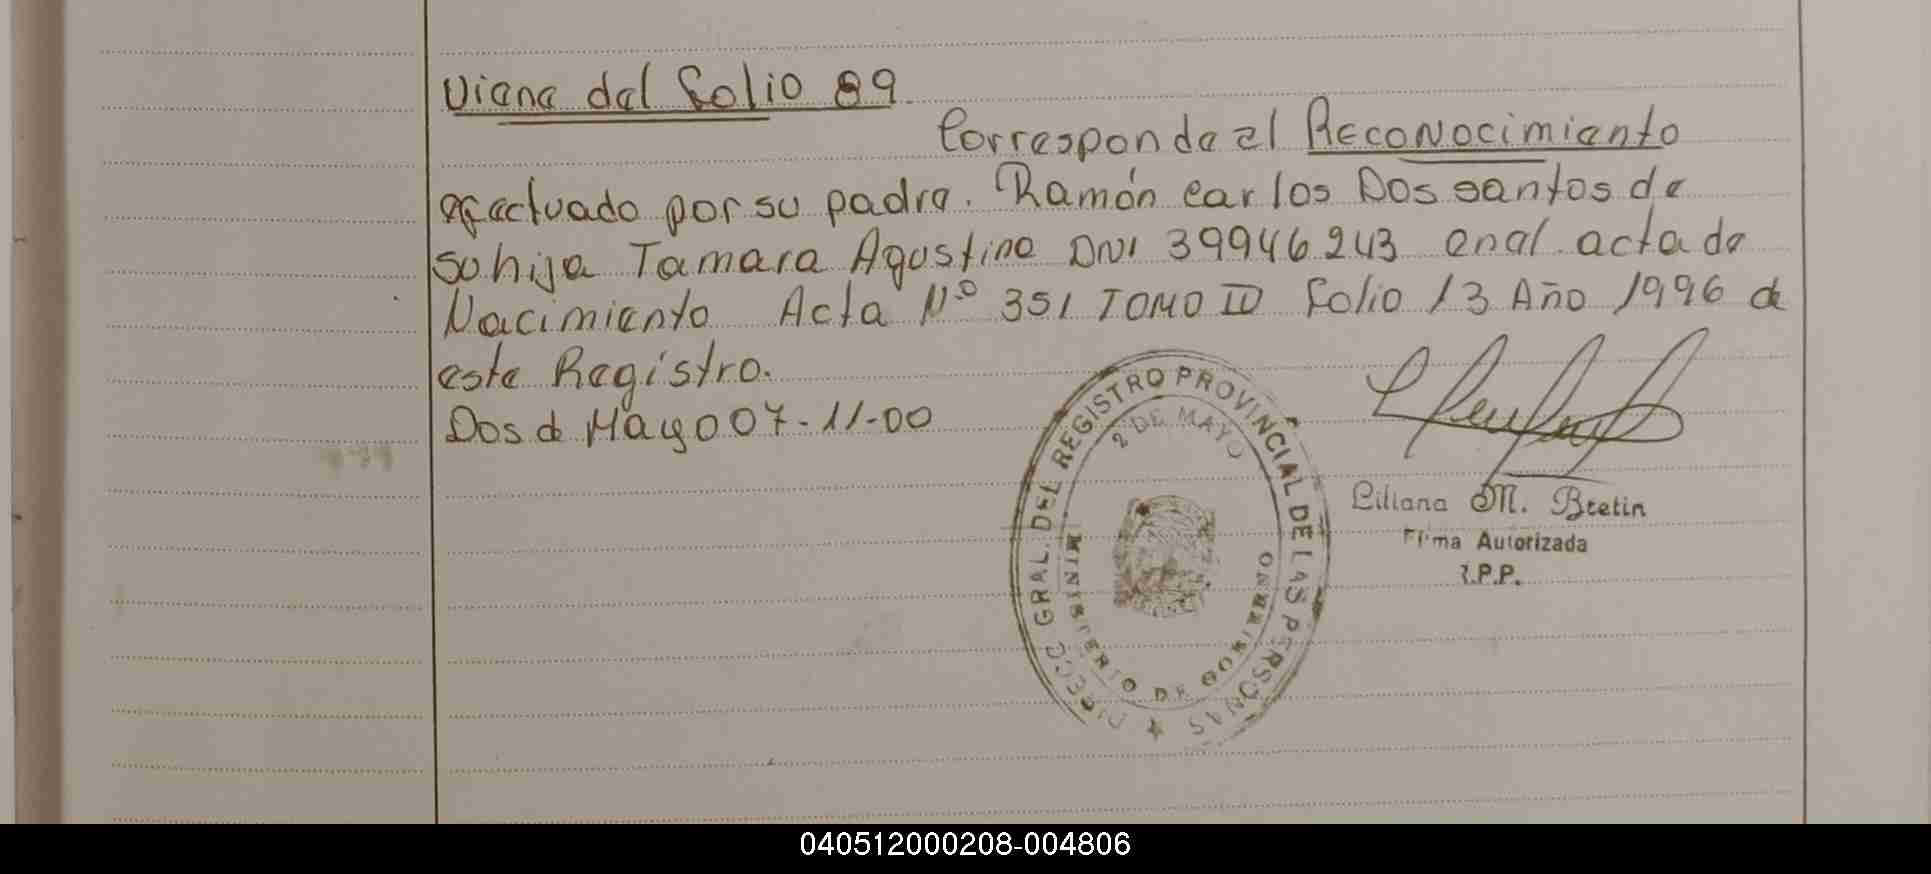 Viene del Folio 89
Corresponde al Reconocimiento
efectuado por su padre. Ramón Carlos Dos santos de
su hija Tamara Agostina DNI 39946243 en al acta de
Nacimiento Acta Nº 351 TOMO II Folio 13 Año 1996 de
este Registro.
Dos de Mayo 07-11-00
DIRECC GRAL. DEL REGISTRO PROVINCIAL DE LAS PERSONAS
2 DE MAYO
MINISTERIO DE GOBIERNO
Liliana M. Bretin
Firma Autorizada
R.P.P.
040512000208-004806